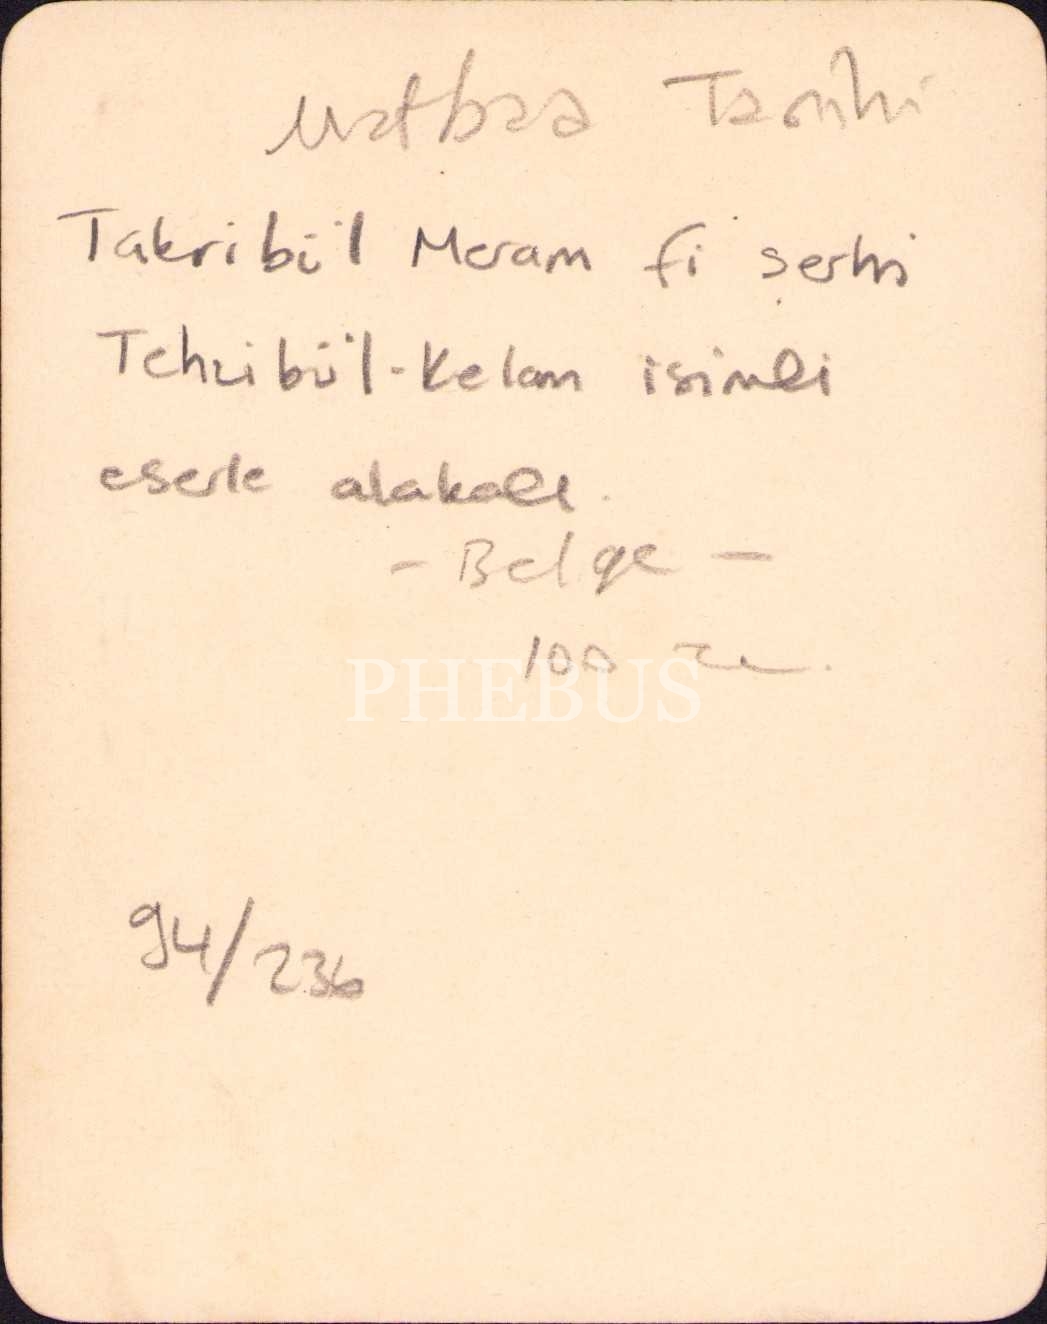 Matbaa Tarihi
Takribü'l Meram fi şerhi
Tehzibü'l-Kelam isimli
eserle alakalı.
- Belge -
100 TL.
PHEBUS
94/236